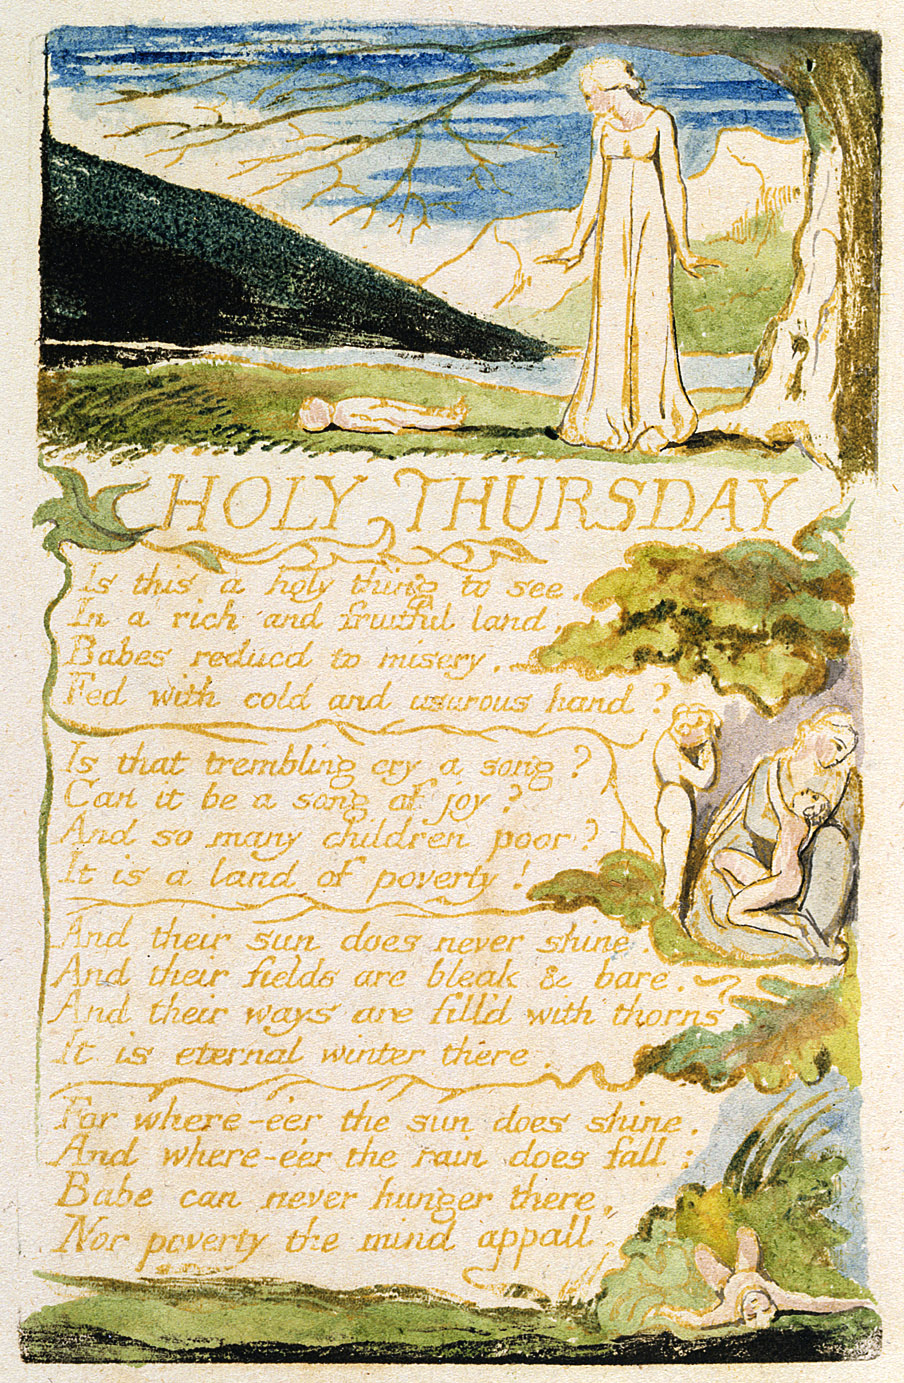 HOLY THURSDAY
Is this a holy thing to see.
In a rich and fruitful land,
Babes reducd to misery.
Fed with cold and usurous hand?
Is that trembling cry a song?
Can it be a song of joy?
And so many children poor?
It is a land of poverty!
And their sun does never shine.
And their fields are bleak & bare.
And their ways are fill'd with thorns
It is eternal winter there.
For where-e'er the sun does shine.
And where-e'er the rain does fall:
Babe can never hunger there,
Nor poverty the mind appall.